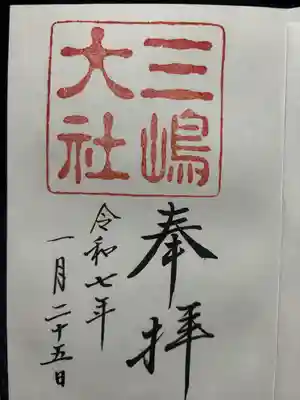 三嶋
大社
奉拝
令和七年
一月二十五日